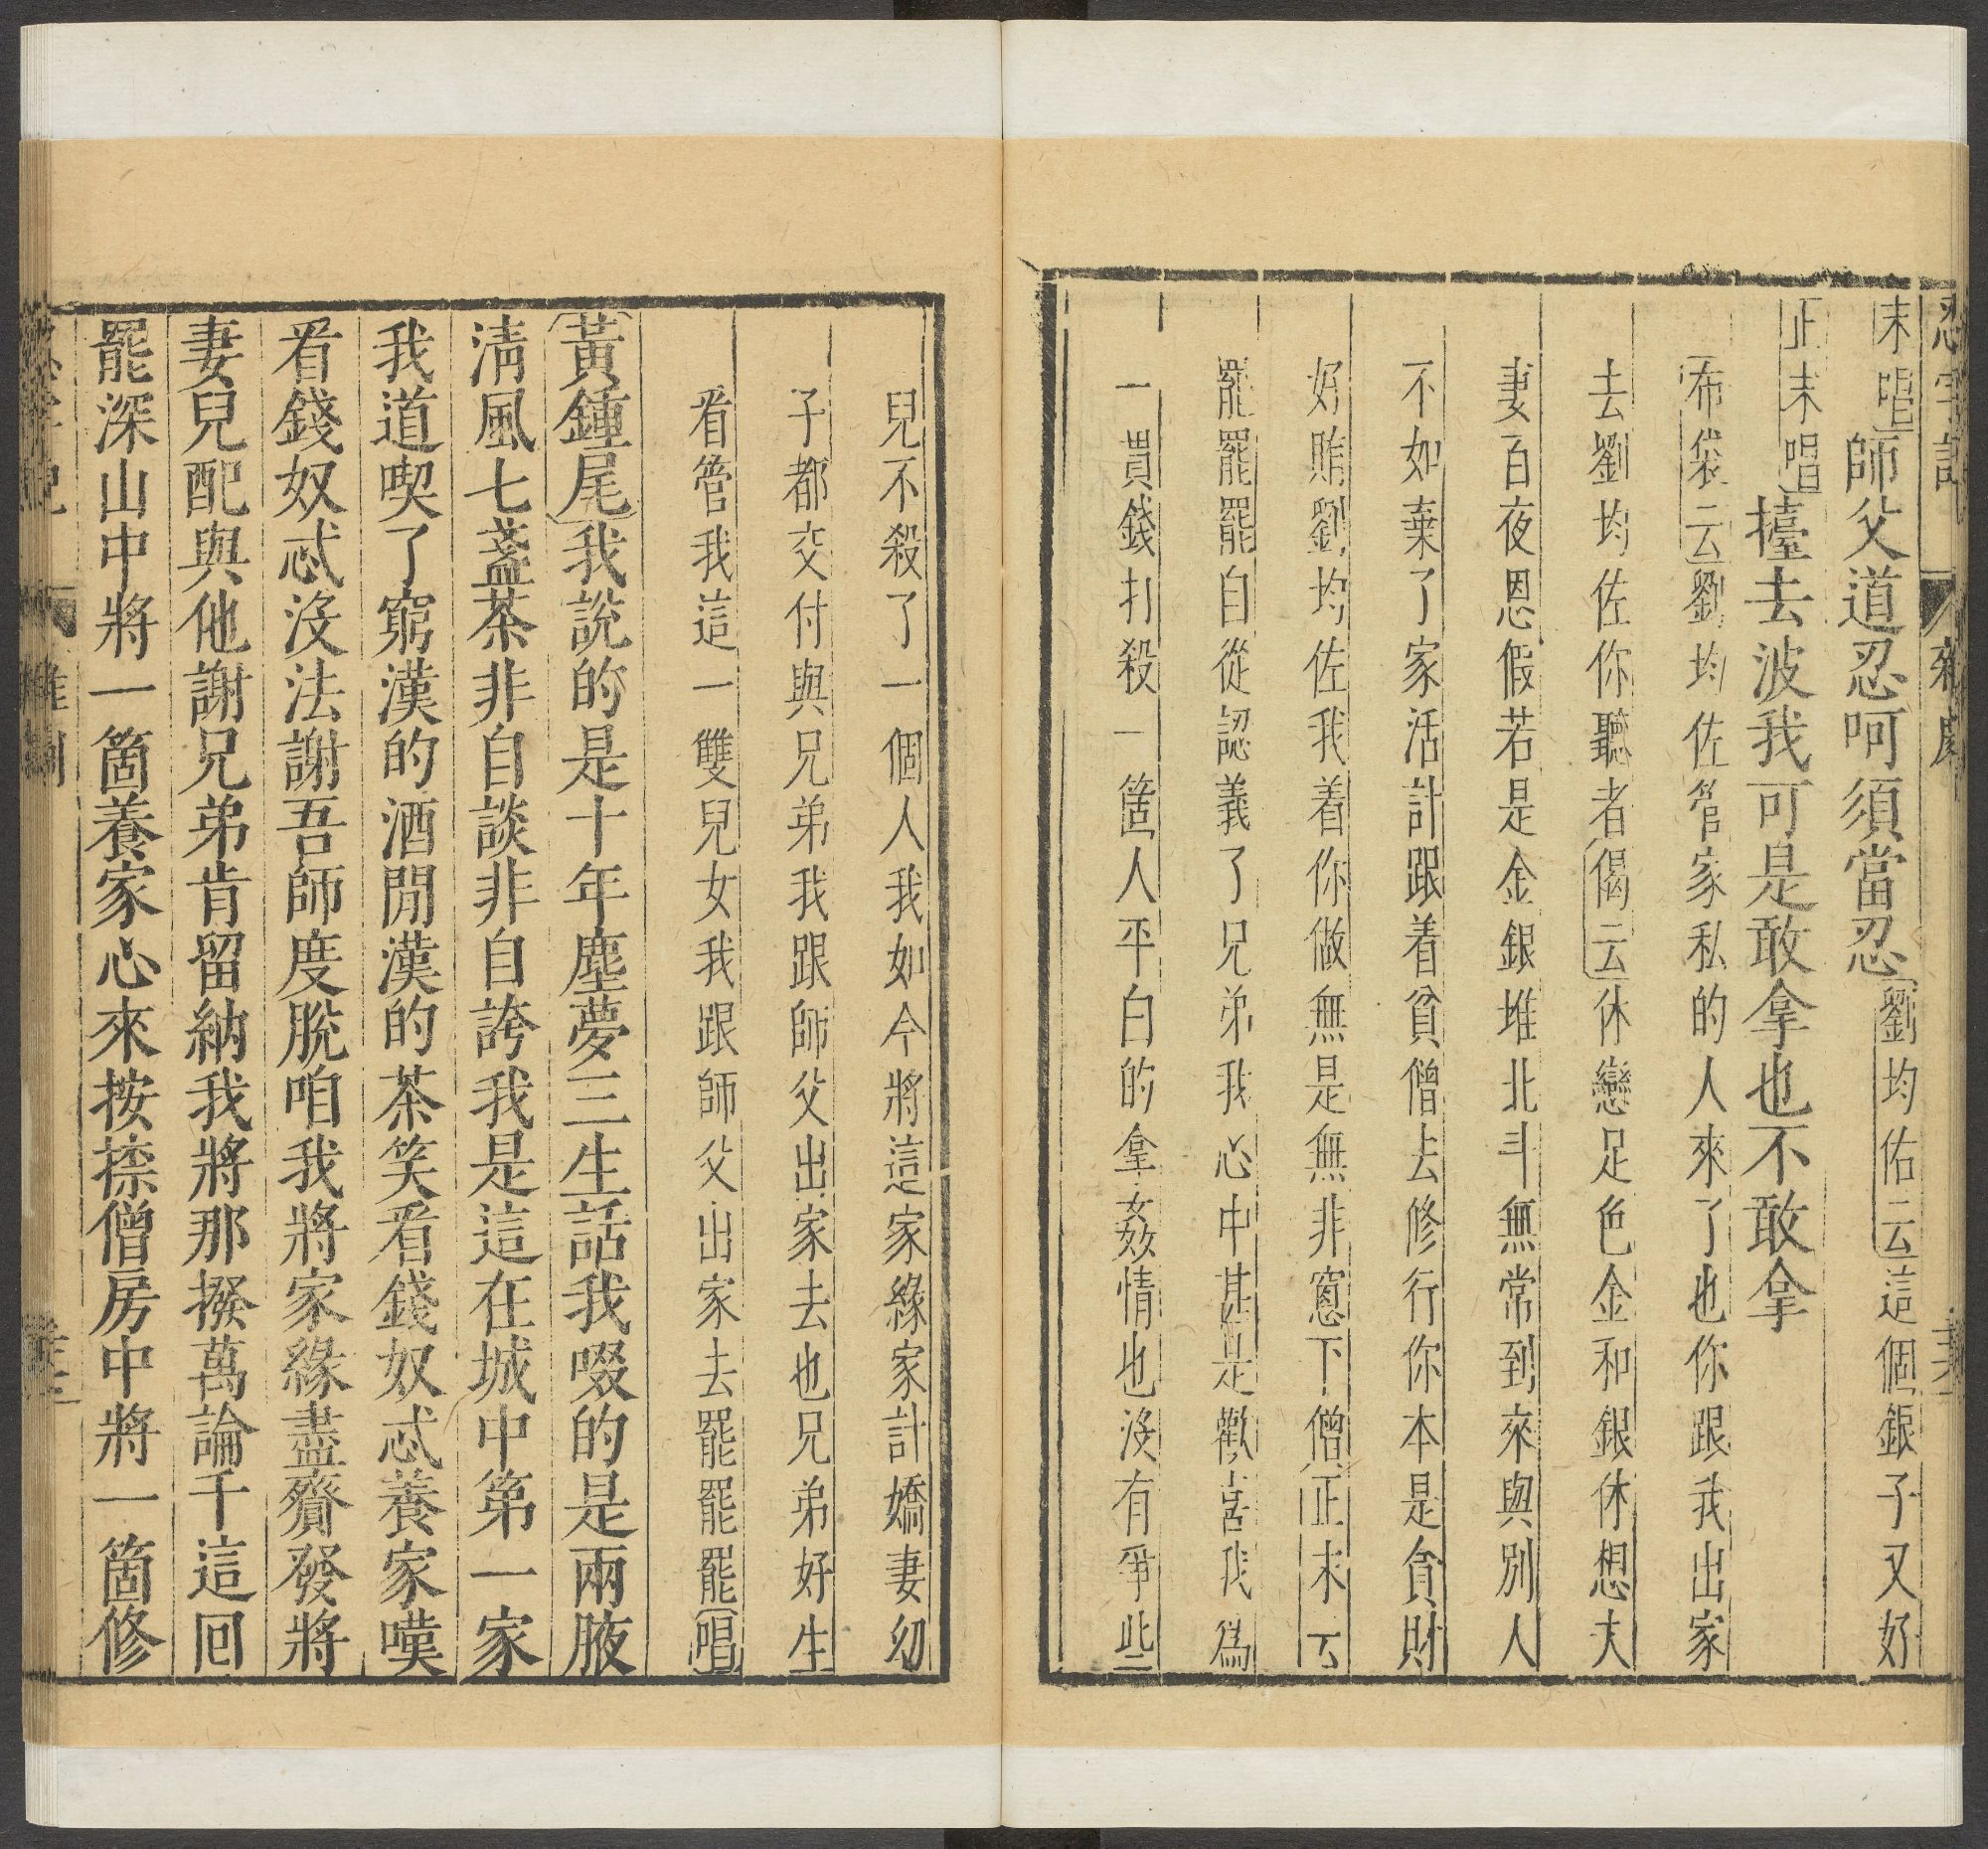 忍字記 雜劇
末唱師父道忍呵須當忍劉均佑云這個銀子又好
正末唱擡去波我可是敢拿也不敢拿
布袋云劉均佐管家私的人來了也你跟我出家
去劉均佐你聽者偈云休戀足色金和銀休想夫
妻百夜恩假若是金銀堆北斗無常到來與別人
不如棄了家活計跟着貧僧去修行你本是貪財
好賄劉均佐我着你做無是無非窻下僧正末云
罷罷罷自從認義了兄弟我心中甚是歡喜我爲
一貫錢打殺一箇人平白的拿姦情也沒有爭些
兒不殺了一個人我如今將這家緣家計嬌妻幼
子都交付與兄弟我跟師父出家去也兄弟好生
看管我這一雙兒女我跟師父出家去罷罷罷唱
黃鍾尾我說的是十年塵夢三生話我啜的是兩腋
淸風七盞茶非自談非自誇我是這在城中第一家
我道喫了窮漢的酒閒漢的茶笑看錢奴忒養家嘆
看錢奴忒沒法謝吾師度脫咱我將家緣盡齎發將
妻兒配與他謝兄弟肯留納我將那撥萬論千這回
罷深山中將一箇養家心來按捺僧房中將一箇修